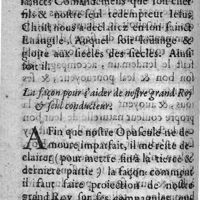 iances Commandemens que son cher
fils & nostre seul redempteur Iesus
Christ nous a declairez en son sainct
Euangile. Auquel soit louange &
gloire aux siecles des siecles. Ainsi
soit il.
La façon pour s'aider de nostre grand Roy
& seul conducteur.
AFin que nostre Opuscule ne de-
moure imparfait, il me reste de-
clairer (pour mettre fin à la tierce &
derniere partie) la façon comment
il faut faire proiection de nostre
grand Roy sur ses compagnies que